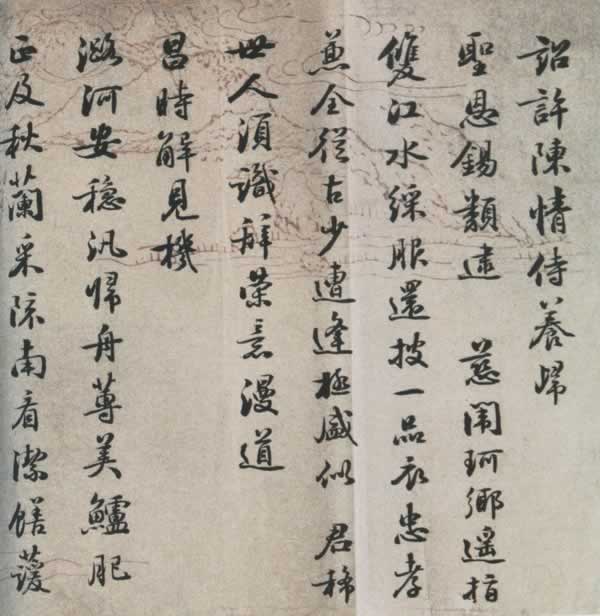 詔許陳情侍養歸
聖恩錫類逮 慈闈珂鄉遥指
雙江水綵服還披一品衣忠孝
兼全從古少遭逢極盛似 君稀
世人須識辭榮意漫道
昌時解見機
潞河安穩汎歸舟蓴美鱸肥
正及秋蘭采陔南看潔饍蘐